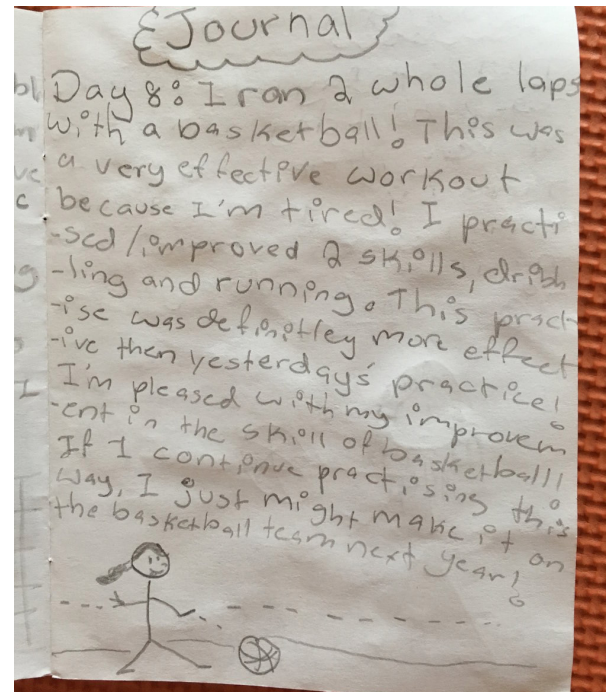 Journal
Day 8: I ran 2 whole laps
with a basketball! This was
a very effective workout
because I'm tired! I practi
-sed/improved 2 skills, dribb
-ling and running. This pract
-ise was definitley more effect
-ive then yesterday's practice!
I'm pleased with my improvem
-ent in the skill of basketball!
If I continue practising this
way, I just might make it on
the basketball team next year!